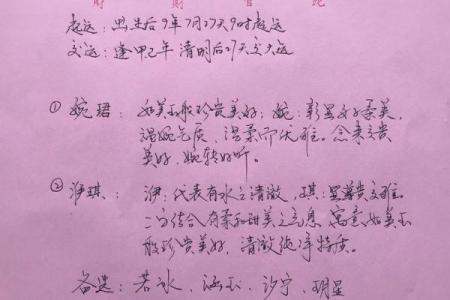 起运：出生后9年7月27天9时起运
交运：逢甲己年清明后27天交大运
① 婉珺：如美玉般珍贵美好；婉：彰显女子柔美，
温婉气质，温柔而优雅。念来文贵
美好，婉转好听。
② 渺琪：代表有水之清澈，琪：显尊贵文雅。
二字结合有柔和甜美之气息，寓意如美玉
般珍贵美好，清澈纯净特质。
备选：若水、涵玉、汐宁、玥星